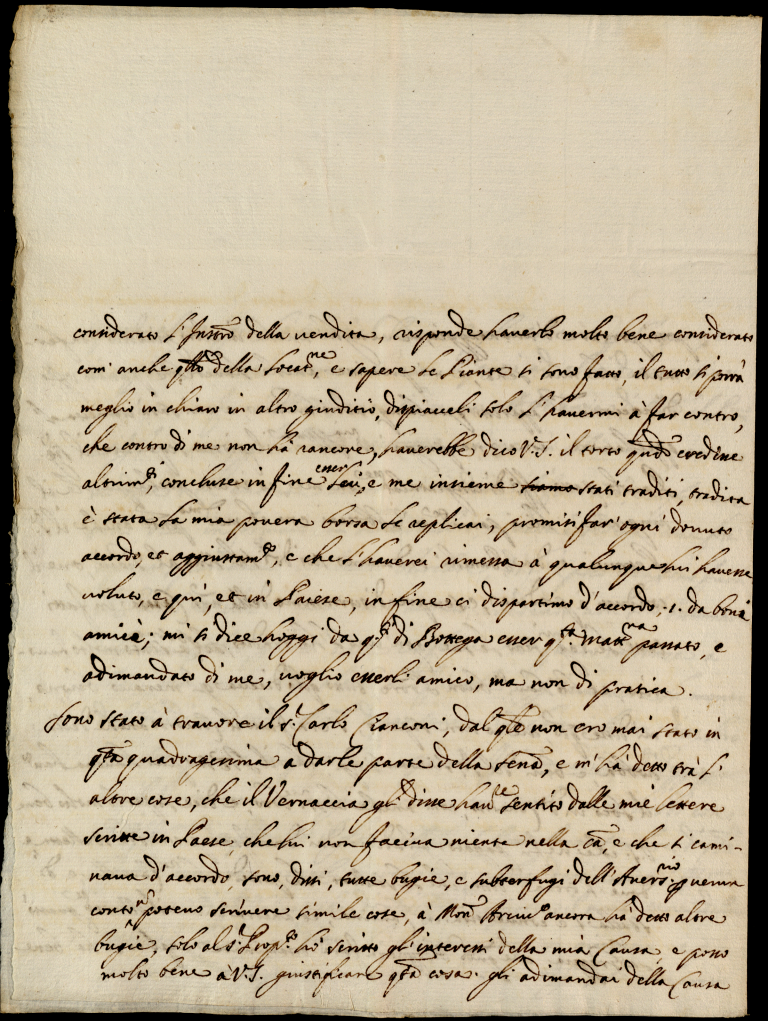 considerato l'Instro della vendita, risponde haverlo molto bene considerato
com' anche qllo della Locatne, e sapere le Piante si sono fatte, il tutto si porrà
meglio in chiaro in altro giuditio, dispiacceli solo l'havermi à far contro,
che contro di me non hà rancore, haverebbe dico V.S. il torto qdo credesse
altrimti, concluse in fine esser lui, e me insieme siamo stati traditi, tradita
è stata la mia povera borsa le replicai, promisi far' ogni dovuto
accordo, et aggiustamto, e che l'haverei rimessa à qualunque lui havesse
voluto, e quì, et in Paese, in fine ci dispartimo d'accordo, .1. da boni
amici; mi si dice hoggi da qsti di Bottega esser qsta mattna passato, e
adimandato di me, voglio esserli amico, ma non di pratica.
Sono stato à trovare il sr Carlo Cianconi, dal qle non ero mai stato in
qta quadragesima a darle parte della senza, e m' hà detto trà l'
altre cose, che il Vernaccia gli disse haver sentito dalle mie lettere
scritte in Paese, che lui non faceva niente nella ca, e che si cami-
nava d'accordo, sono, dissi, tutte bugie, e subterfugi dell' Aversrio
conto non potevo scrivere simile cose, à Monr Arcivo ancora hà detto altre
bugie, solo al sr Prop.to hò scritto gl' interessi della mia Causa, e posso
molto bene à V.S. giustificare qta cosa. gli adimandai della Causa